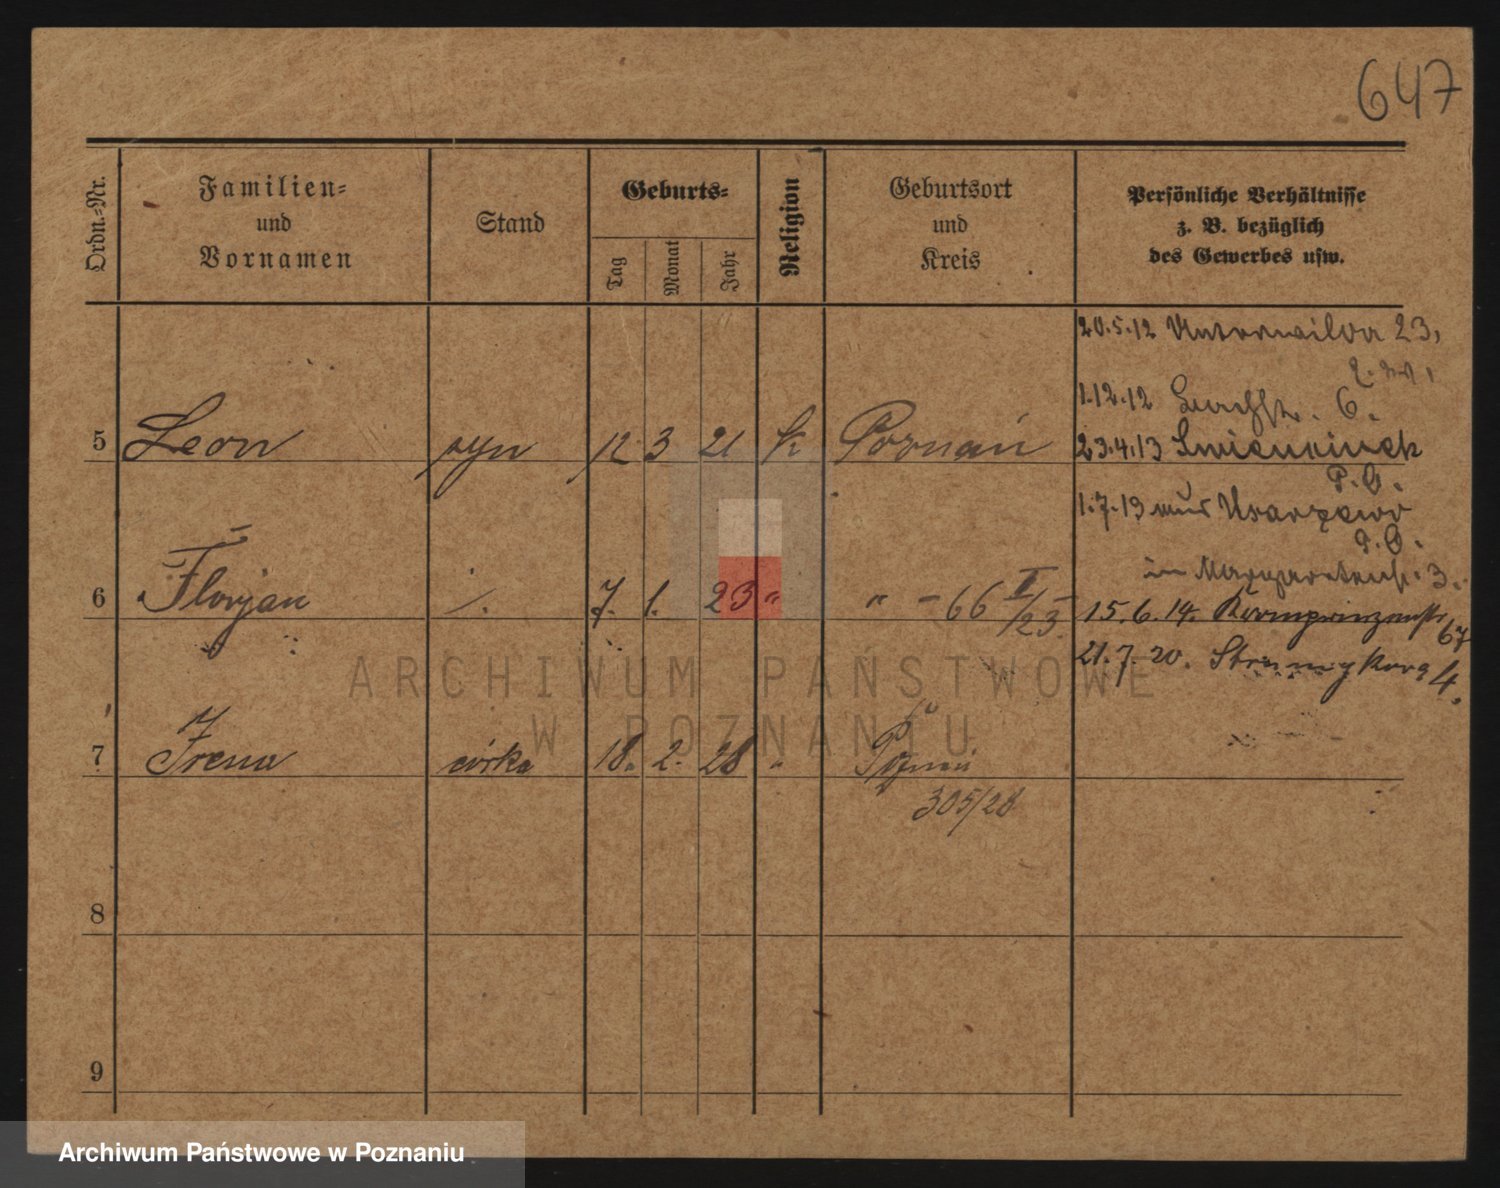 647
Ordn.-Nr.
Familien-
und
Vornamen
Stand
Geburts-
Tag
Monat
Jahr
Religion
Geburtsort
und
Kreis
Persönliche Verhältnisse
z. B. bezüglich
des Gewerbes usw.
20.5.12 Unterwilda 23,
1.12.12 6.
5 Leon syn 12 3 21 k Poznań
23.4.13
P. O.
1.7.13
P. O.
in 3.
6 Florjan 7. 1. 23 " " - 66 II/23 -
15.6.14. Kronprinzenstr. 67
21.7.20. Strumykowa 4.
7 Irena córka 18. 2. 28 " Poznań
305/28
8
9
ARCHIWUM PAŃSTWOWE
W POZNANIU
Archiwum Państwowe w Poznaniu